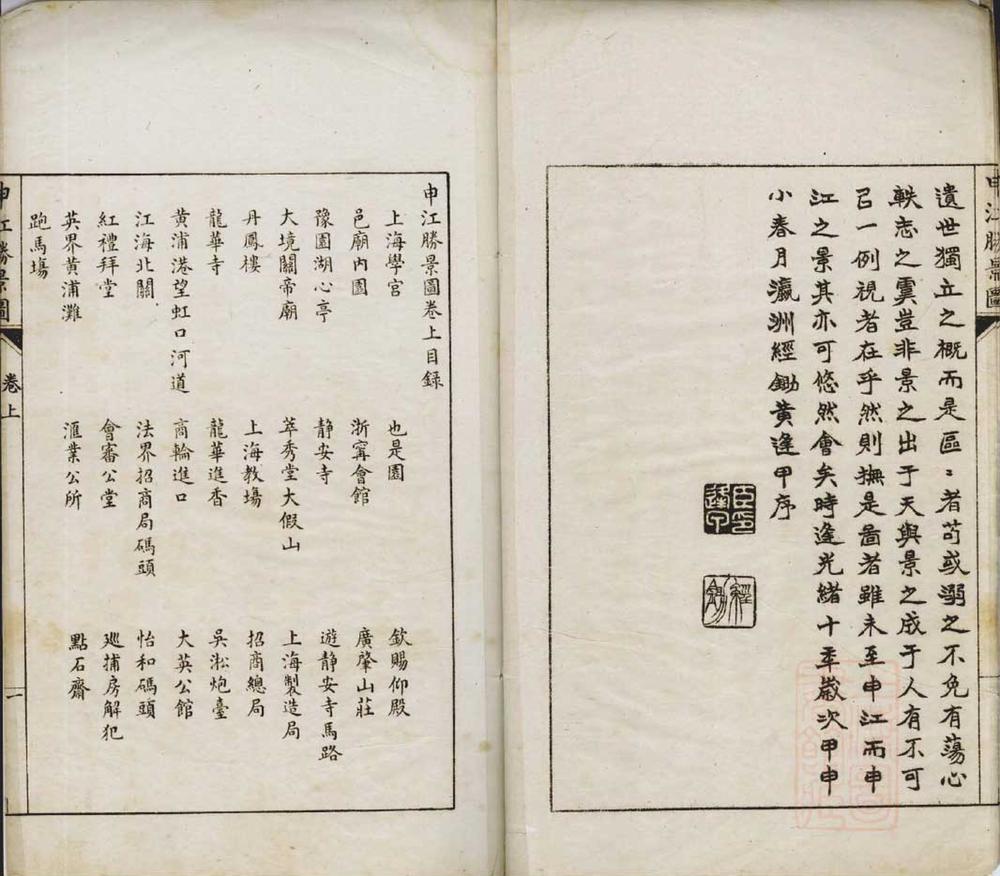 申江勝景圖
遺世獨立之概而是區〻者苟或溺之不免有蕩心
軼志之虞豈非景之出于天與景之成于人有不可
㠯一例視者在乎然則撫是啚者雖未至申江而申
江之景其亦可悠然會矣時逢光緒十年歲次甲申
小春月瀛洲經鋤黃逢甲序
臣印逢甲
經鋤
申江勝景圖卷上目録
上海學宮 也是園 欽賜仰殿
邑廟內園 浙甯會館 廣肇山莊
豫園湖心亭 静安寺 遊静安寺馬路
大境關帝廟 萃秀堂大假山 上海製造局
丹鳳樓 上海教場 招商總局
龍華寺 龍華進香 吳淞炮臺
黄浦港望虹口河道 商輪進口 大英公館
江海北關 法界招商局碼頭 怡和碼頭
紅禮拜堂 會審公堂 巡捕房解犯
英界黄浦灘 滙業公所 點石齋
跑馬場
申江勝景圖 卷上 一